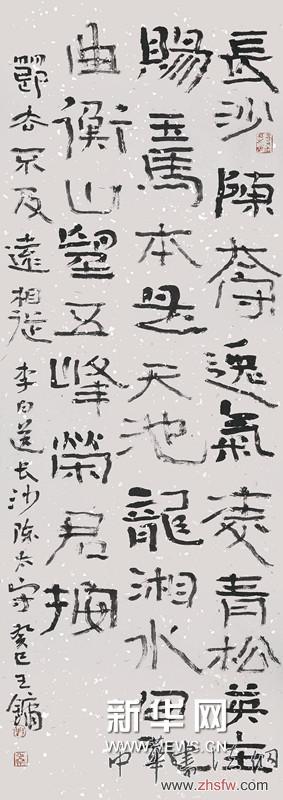 長沙陳太守逸氣凌青松英主
賜五馬本是天池龍湘水回
曲衡山望五峰榮君按
節去不及遠相從 李白送长沙陈太守 癸巳王镛
新华网
WWW.NEWS.CN
中華書法網
www.zhsfw.com